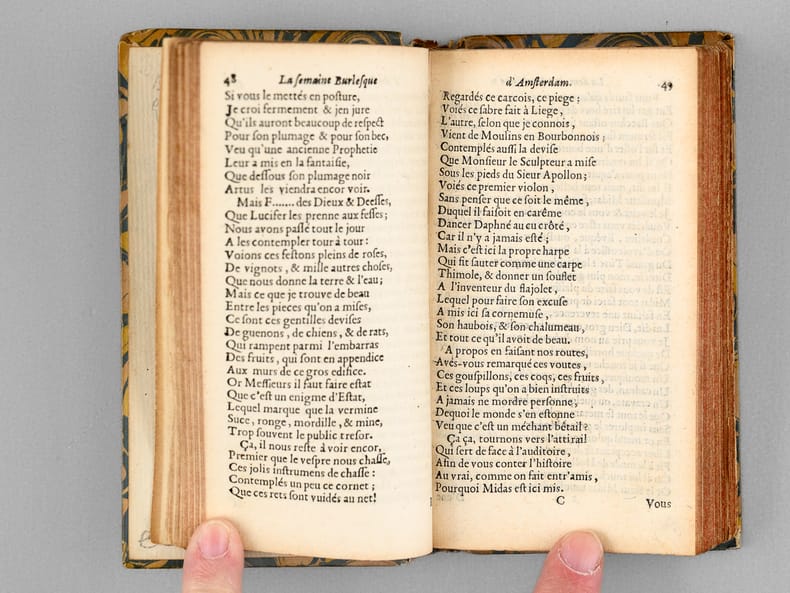 48
La semaine Burlesque
Si vous le mettés en posture,
Je croi fermement & jen jure
Qu'ils auront beaucoup de respect
Pour son plumage & pour son bec,
Veu qu'une ancienne Prophetie
Leur a mis en la fantaisie,
Que dessous son plumage noir
Artus les viendra encor voir.
Mais F....... des Dieux & Deesses,
Que Lucifer les prenne aux fesses;
Nous avons passé tout le jour
A les contempler tour à tour:
Voions ces festons pleins de roses,
De vignots, & mille autres choses,
Que nous donne la terre & l'eau;
Mais ce que je trouve de beau
Entre les pieces qu'on a mises,
Ce sont ces gentilles devises
De guenons, de chiens, & de rats,
Qui rampent parmi l'embarras
Des fruits, qui sont en appendice
Aux murs de ce gros edifice.
Or Messieurs il faut faire estat
Que c'est un enigme d'Estat,
Lequel marque que la vermine
Suce, ronge, mordille, & mine,
Trop souvent le public tresor.
Ça, il nous reste à voir encor,
Premier que le vespre nous chasse,
Ces jolis instrumens de chasse:
Contemplés un peu ce cornet;
Que ces rets sont vuidés au net!
d'Amsterdam.
49
Regardés ce carcois, ce piege;
Voiés ce sabre fait à Liege,
L'autre, selon que je connois,
Vient de Moulins en Bourbonnois;
Contemplés aussi la devise
Que Monsieur le Sculpteur a mise
Sous les pieds du Sieur Apollon;
Voiés ce premier violon,
Sans penser que ce soit le même,
Duquel il faisoit en carême
Dancer Daphné au cu crôté,
Car il n'y a jamais esté;
Mais c'est ici la propre harpe
Qui fit sauter comme une carpe
Thimole, & donner un souflet
A l'inventeur du flajolet,
Lequel pour faire son excuse
A mis ici sa cornemuse,
Son haubois, & son chalumeau,
Et tout ce qu'il avoit de beau.
A propos en faisant nos routes,
Avés-vous remarqué ces voutes,
Ces goupillons, ces coqs, ces fruits,
Et ces loups qu'on a bien instruits
A jamais ne mordre personne,
Dequoi le monde s'en estonne
Veu que c'est un méchant bétail?
Ça ça, tournons vers l'attirail
Qui sert de face à l'auditoire,
Afin de vous conter l'histoire
Au vrai, comme on fait entr'amis,
Pourquoi Midas est ici mis.
C
Vous